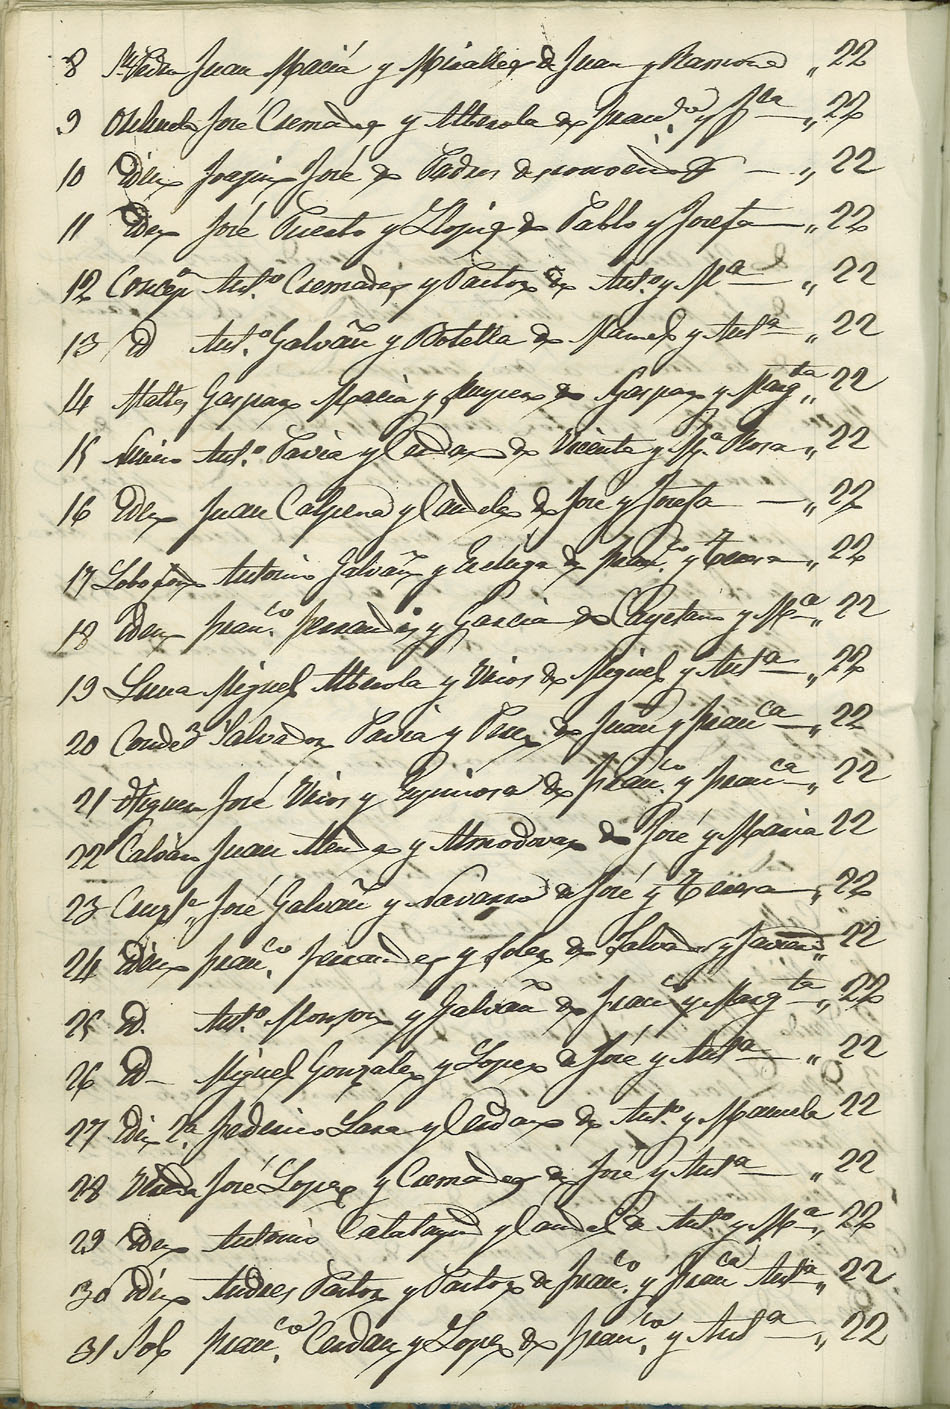 8 Juan Maciá y Miralles de Juan y Ramona „ 22
9 José Cremades y Alberola de Fran.co y J.fa — „ 22
10 Idem Joaquin José de Padres desconocidos — „ 22
11 Idem José Puerto y Llopis de Pablo y Josefa — „ 22
12 Concep.n Ant.o Cremades y Pastor de Ant.o y M.a — „ 22
13 Id Ant.o Galvañ y Botella de Manuel y Ant.a — „ 22
14 Gaspar Maciá y de Gaspar y Marg.ta „ 22
15 Ant.o Pavia y Cerdan de Vicente y M.a Rosa „ 22
16 Idem Juan Calpena y Candela de José y Josefa — „ 22
17 Antonio Galvañ y de Fran.co y Teresa „ 22
18 Idem Fran.co Fernandez y Garcia de Cayetano y M.a „ 22
19 Luna Miguel Alberola y Mira de Miguel y Ant.a — „ 22
20 Salvador Pavia y de Juan y Fran.ca „ 22
21 José y Espinosa de Fran.co y Fran.ca „ 22
22 Juan y Almodovar de José y Maria 22
23 José Galvañ y Navarro de José y Teresa „ 22
24 Idem Fran.co Fernandez y Soler de Salvador y „ 22
25 Id. Ant.o Monzon y Galvañ de Fran.co y Marg.ta „ 22
26 Id — Miguel Gonzalez y Lopez de José y Ant.a — „ 22
27 2.a Federico Lara y Cerdan de Ant.o y Manuela 22
28 José Lopez y Cremades de José y Ant.a — „ 22
29 Idem Antonio Calatayud y Candela de Ant.o y M.a „ 22
30 Idem Andres Pastor y Pastor de Fran.co y Fran.ca Ant.a „ 22
31 Sol Fran.co Cerdan y Lopez de Fran.co y Ant.a — „ 22